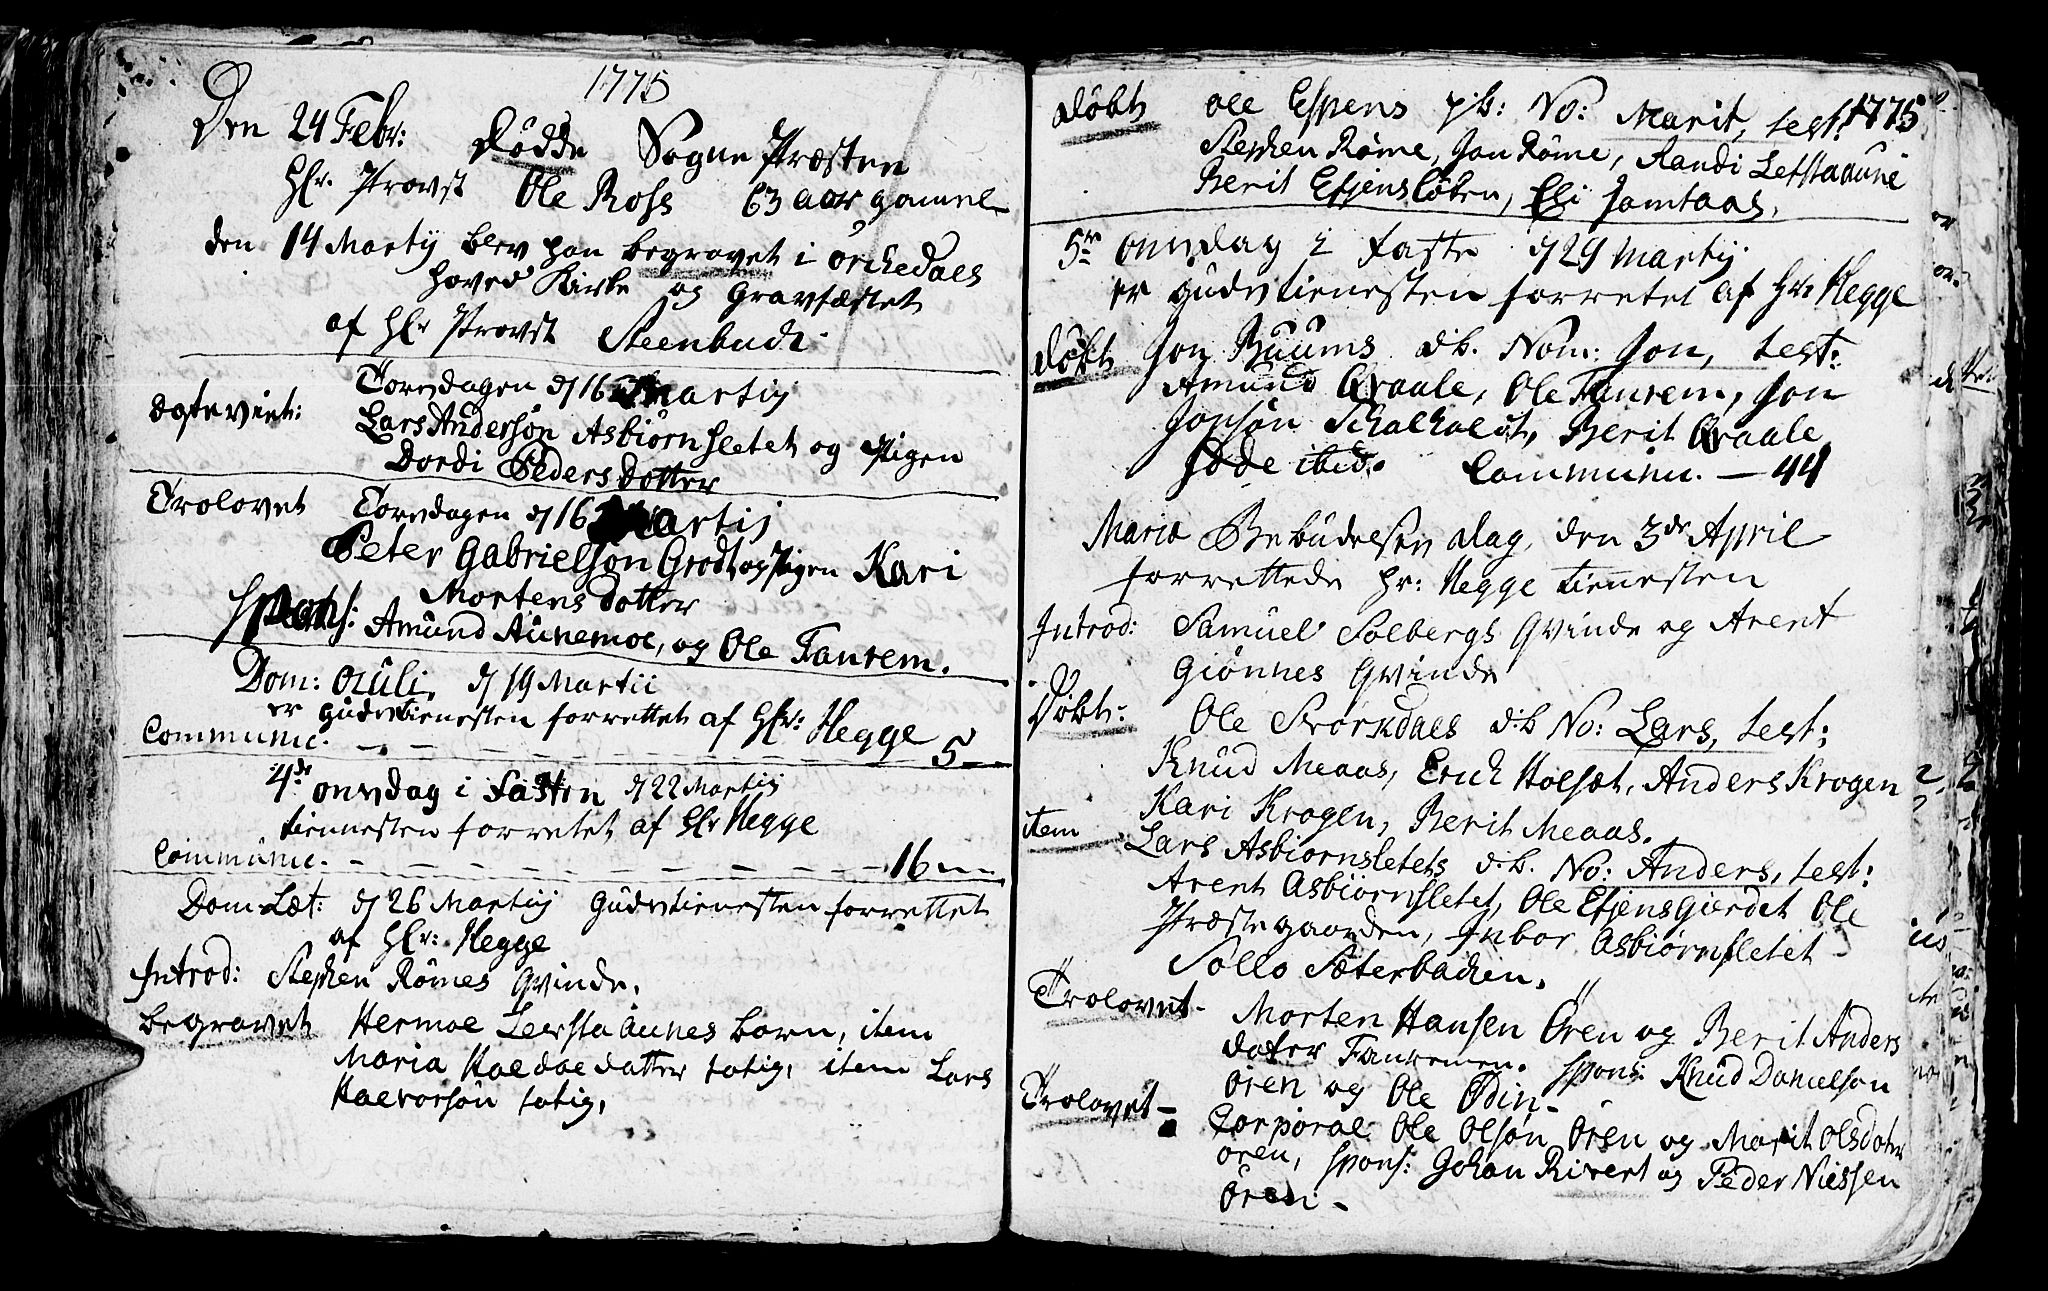 1775
Den 24 Febr: Dödde Sogne Præsten
Hr. Provst Ole Ross 63 aar gammel
den 14 Martij blev han begravet i Örckedals
hoved Kirke og Gravfæstet
af Hr Provst Steenbuch
Ægteviet: Torsdagen d 16 Martij
Lars Andersön Asbiörnsletet og Pigen
Dordi Peders Dotter
Trolovet Torsdagen d 16 Martij
Peter Gabrielson Grodt og Pigen Kari
Mortens Dotter
Spons: Amund Aünemoe, og Ole Fanrem.
Dom: Oculi. d 19 Martii
er gudstienesten forrettet af Hr: Hegge
Communic. - - - 5
4de onsdag i Fasten d 22 Martij
tiennesten forretet af Hr Hegge
Communic. - - - 16
Dom Læt: d 26 Martij gudstienesten forrettet
af Hr: Hegge
Introd: Stephen Römes Qvinde.
begravet Hermoe Leersta aunes barn, item
Maria Haldoe datter fatig, item Lars
Halvorsön fatig,
Döbt Ole Espens p:b: No: Marit, test: 1775
Stephen Röme, Jon Röme, Randi Letstaaune
Berit Efjenslöken, Eli Jamtaas,
5te onsdag i Faste d 29 Martij
er gudstienesten forretet af Hr: Hegge
Döbt Jon Buums d.b. Nom: Jon, test:
Amund Qvaale, Ole Fanrem, Jon
Jonsön Schalholdt, Berit Qvaale
ibid. Commun. - 44
Maria Bebudelses dag, den 3de April
forrettede Hr: Hegge tiennesten
Introd: Samuel Solbergs Qvinde og Arent
Giönnes Qvinde
Döbt: Ole Svorkdals d:b No: Lars, test:
Knud Meaas, Erich Holset, Anders Krogen
Kari Krogen, Berit Meaas.
item Lars Asbiornsletets d:b. No: Anders, test:
Arent Asbiörnsletet, Ole Efjensgierdet Ole
Præstegaarden, Inbor Asbiörnsletet
Sollo Sæterbachen.
Trolovet - Morten Hansen Ören og Berit Anders
dater Fanremen. Spons: Knud Danielson
Ören og Ole Ödin -
Trolovet - Corporal Ole Olsön Ören og Marit Olsdater
Ören, Spons: Johan Rivert og Peder Nielsen
Ören -